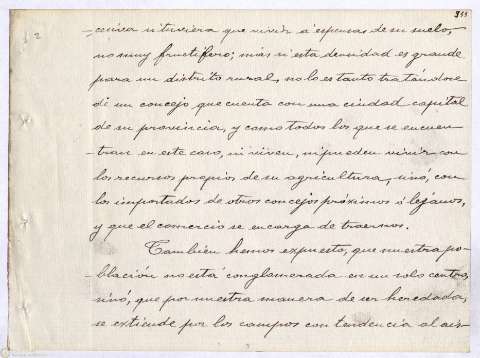 355
-cería si tuviera que vivir á espensas de su suelo,
no muy fructifero; mas si esta densidad es grande
para un distrito rural, no lo es tanto tratándose
de un concejo que cuenta con una ciudad capital
de su provincia, y como todos los que se encuen-
-tran en este caso, ni viven, ni pueden vivir con
los recursos propios de su agricultura, sinó, con
los importados de otros concejos próximos ó lejanos,
y que el comercio se encarga de traernos.
Tambien hemos expuesto, que nuestra po-
-blación no está conglomerada en un solo centro,
sinó, que por nuestra manera de ser heredada,
se extiende por los campos con tendencia al ais-